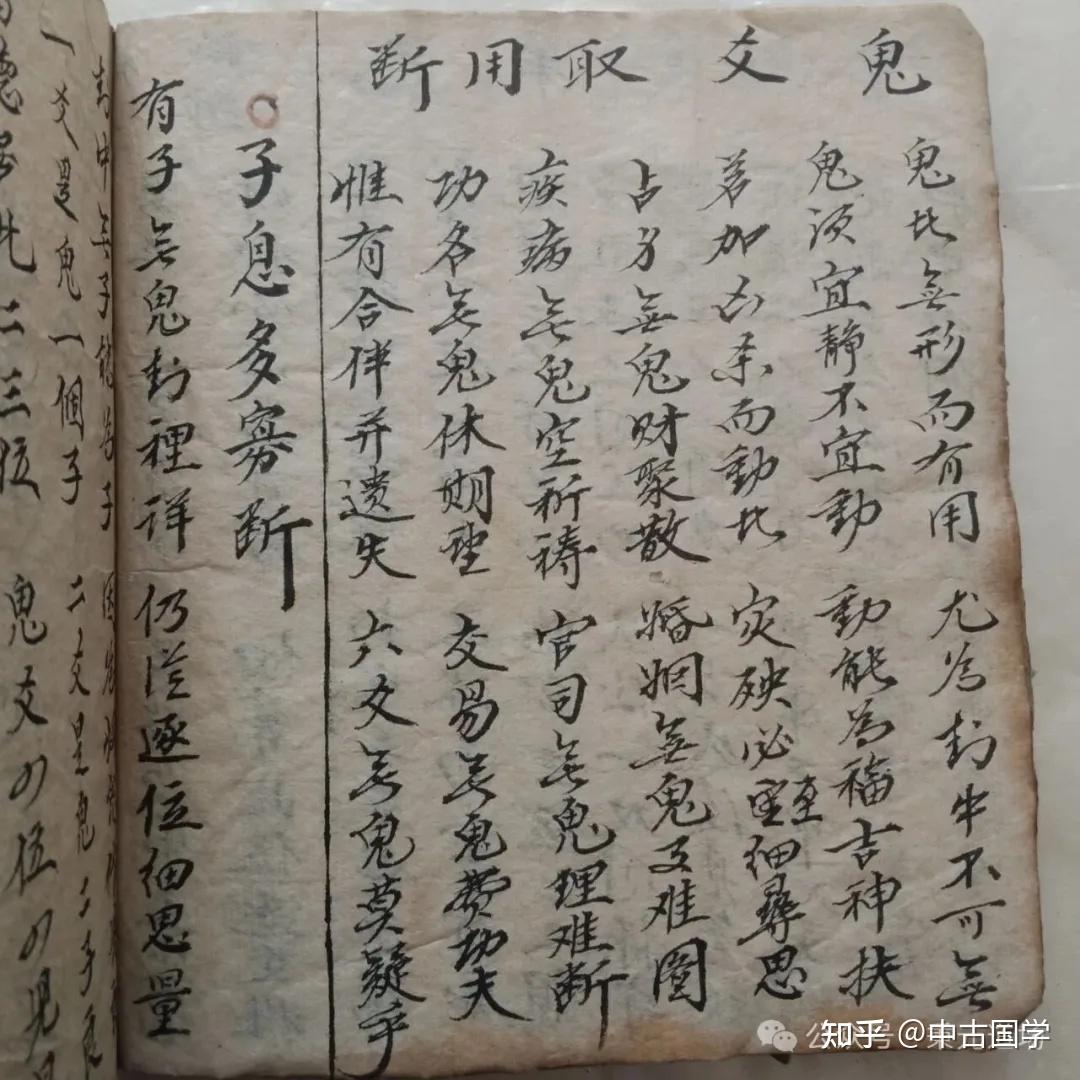 鬼爻取用断
鬼比無形而有用 尤為卦中不可無
鬼须宜静不宜動 動能為福吉神扶
若加凶杀而動比 灾殃必至細尋思
占身無鬼财聚散 婚姻無鬼又难圖
疾病無鬼空祈祷 官司無鬼理难断
功名無鬼休期望 交易無鬼费功夫
惟有合伴并遗失 六爻無鬼莫疑乎
子息多寡断
有子無鬼卦裡详 仍從逐位细思量
卦中無子 子
一爻是鬼一個子 二爻是鬼二子
二三位 鬼爻四位四
知乎 @中古国学
公众号